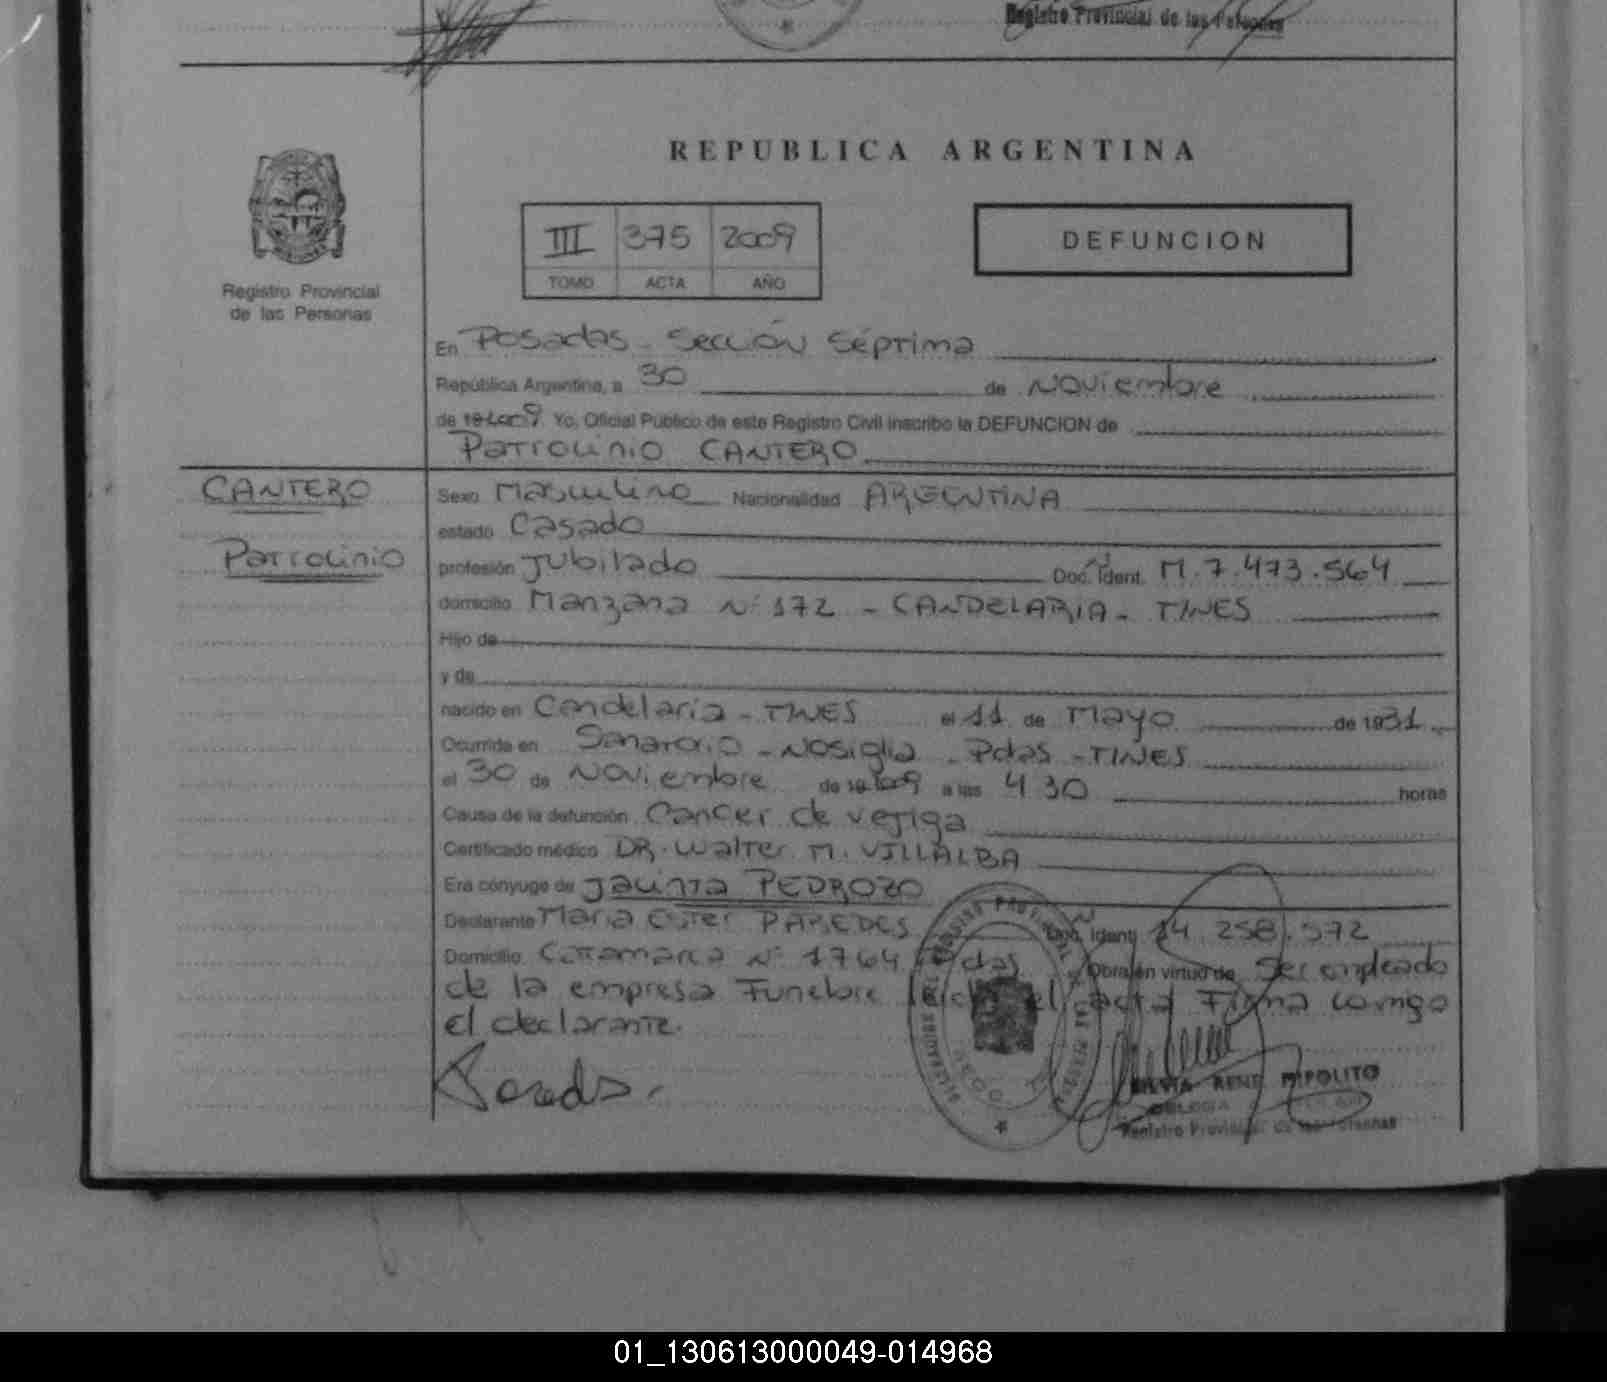 Registro Provincial de las Personas
REPUBLICA ARGENTINA
III 375 2009
TOMO ACTA AÑO
DEFUNCION
Registro Provincial
de las Personas
En Posadas - Sección Séptima
República Argentina, a 30 de Noviembre
de 2009 Yo, Oficial Público de este Registro Civil inscribo la DEFUNCION de
Patrocinio CANTERO
CANTERO
Patrocinio
Sexo Masculino Nacionalidad ARGENTINA
estado Casado
profesión Jubilado Doc. Ident. M. 7.473.564
domicilio Manzana Nº 172 - CANDELARIA - MNES
Hijo de
y de
nacido en Candelaria - MNES el 11 de Mayo de 1931
Ocurrida en Sanatorio - Nosiglia - Pdas - MNES
el 30 de Noviembre de 2009 a las 4 30 horas
Causa de la defunción Cancer de vejiga
Certificado médico DR. Walter M. VILLALBA
Era cónyuge de Jacinta PEDROZO
Declarante Maria Ester PAREDES Doc. Ident. 14.258.572
Domicilio Catamarca Nº 1764 Pdas Obra en virtud de Ser empleado
de la empresa Funebre leida el acta Firma conmigo
el declarante.
SILVIA RENE HIPOLITO
Registro Provincial de las Personas
01_130613000049-014968